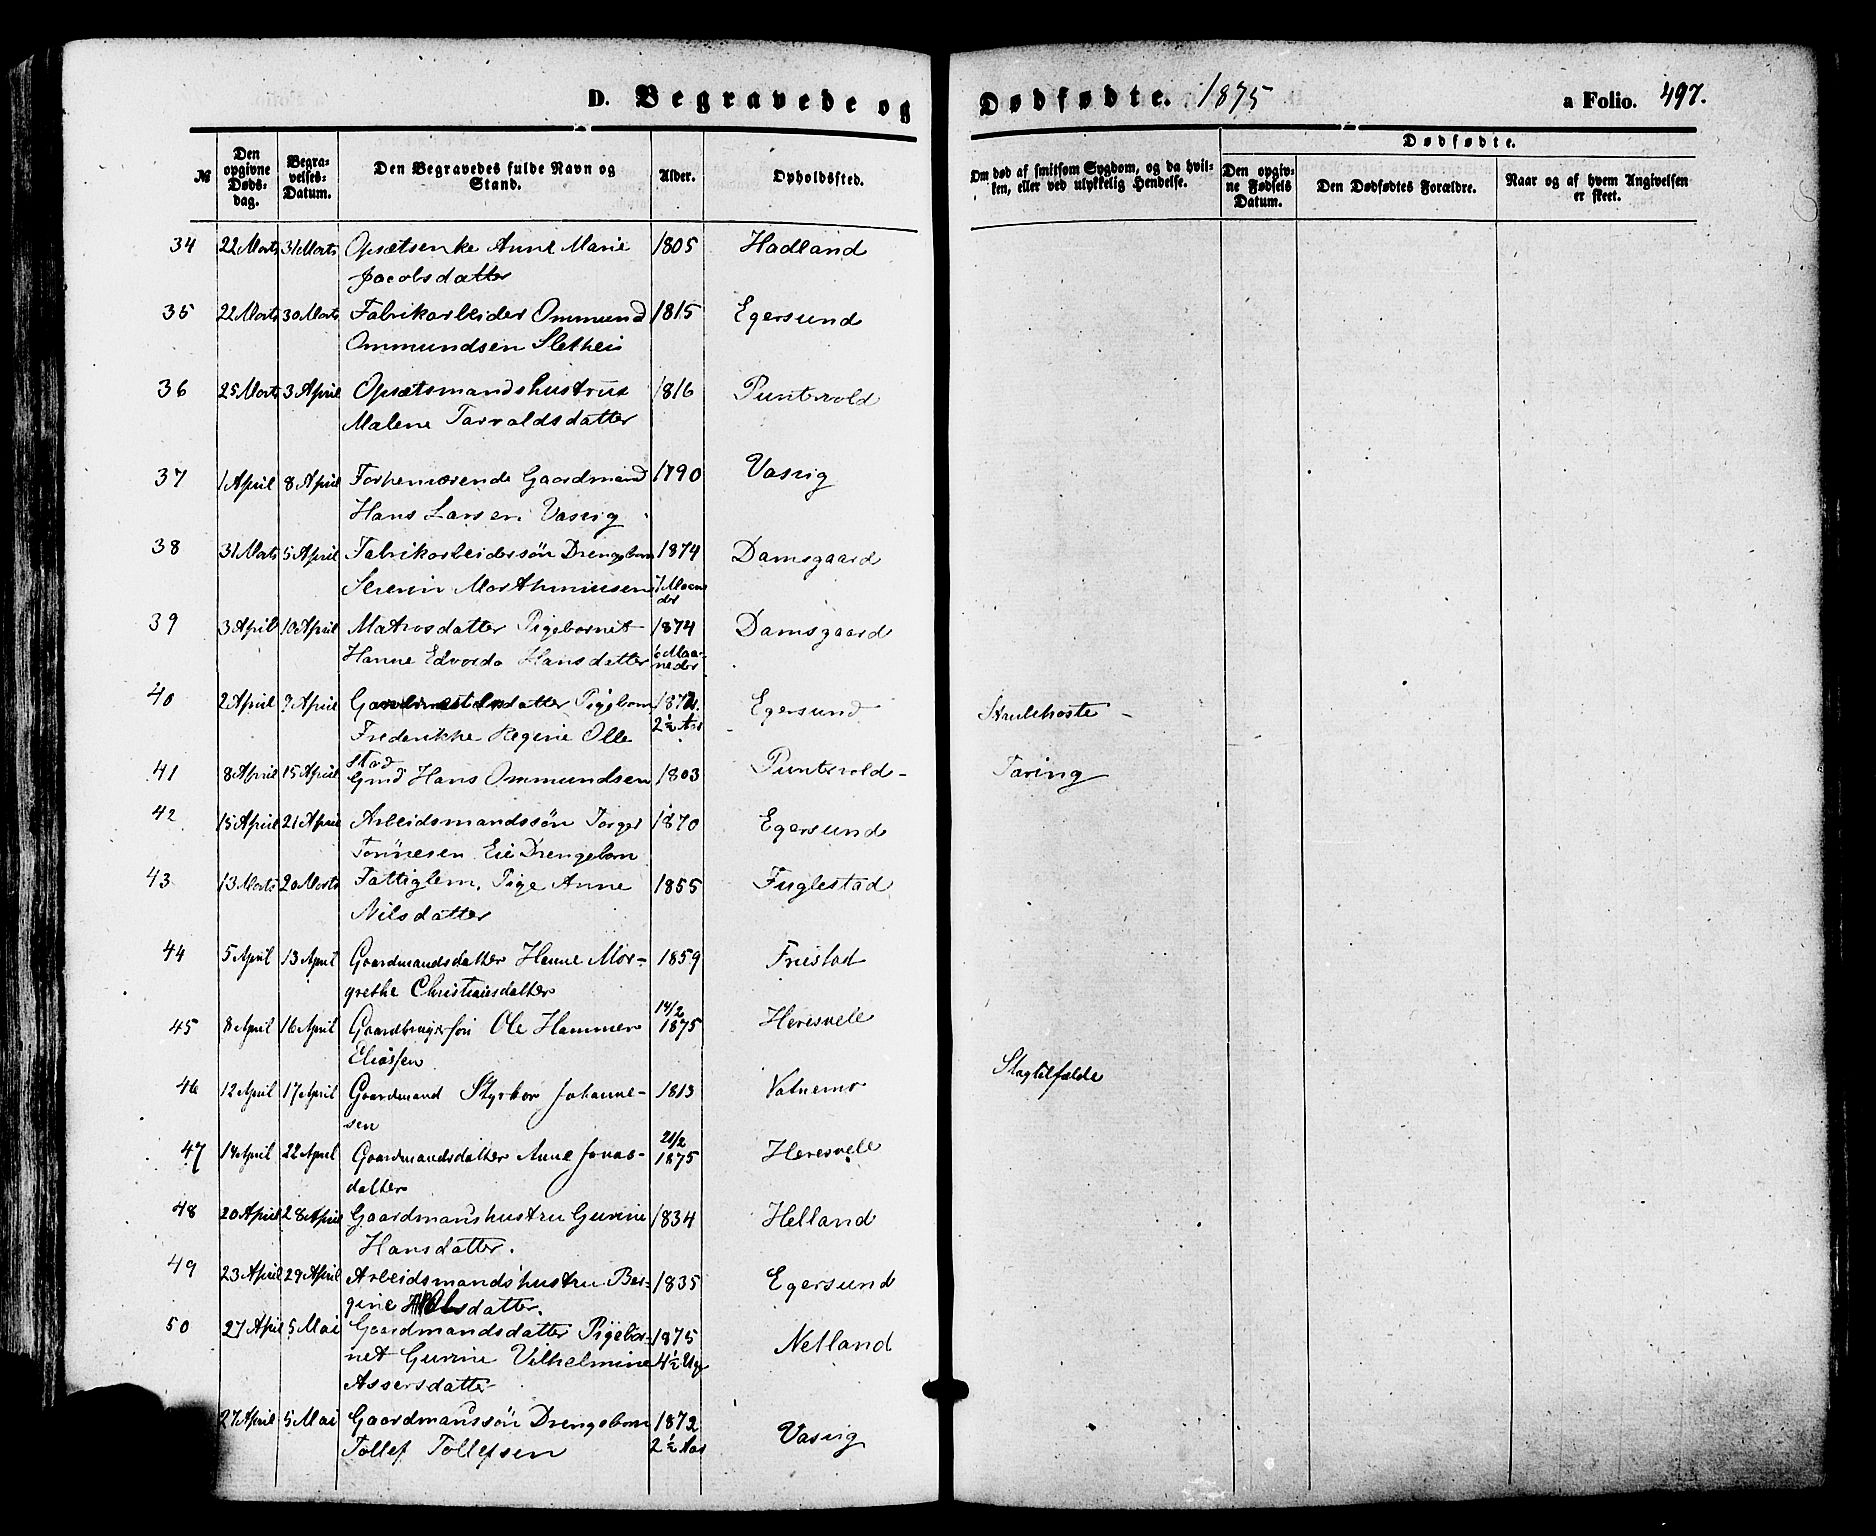 D. Begravede og Dødfødte. 1875 a Folio. 497.
№ Den opgivne Dødsdag. Begravelses-Datum. Den Begravedes fulde Navn og Stand. Alder. Opholdssted. Om død af smitsom Sygdom, og da hvilken, eller ved ulykkelig Hendelse. Dødfødte. Den opgivne Fødsels Datum. Den Dødfødtes Forældre. Naar og af hvem Angivelsen er skeet.
34 22 Marts 31 Marts Opsætsenke Anne Marie 1805 Hadland
Jacobsdatter
35 22 Marts 30 Marts Fabrikarbeider Ommund 1815 Egersund
Ommundsen Slethei
36 25 Marts 3 April Opsætsmandshustrue 1816 Puntervold
Malene Tarvaldsdatter
37 1 April 8 April Forhenværende Gaardmand 1790 Vasvig
Hans Larsen Vasvig
38 31 Marts 5 April Fabrikarbeidersøn Drengebarn 1874 Damsgaard
Severin Marthiniusen 7 Maaneder
39 3 April 10 April Matrosdatter Pigebarnet 1874 Damsgaard
Hanne Edvarda Hansdatter 6 Maaneder
40 2 April 7 April datter Pigebarn 1872 Egersund Strubehoste
Frederikke Regine Olle 2½ Aar
stad
41 8 April 15 April Gmd Hans Ommundsen 1803 Puntervold Tæring
42 15 April 21 April Arbeidsmandssøn Torger 1870 Egersund
Tønnesen Eie Drengebarn
43 13 Marts 20 Marts Fattiglem, Pige Anne 1855 Fuglestad
Nilsdatter
44 5 April 13 April Gaardmandsdatter Hanne Mar- 1859 Friestad
grethe Christiansdatter
45 8 April 16 April Ole Hammer 14/2 1875 Heresvele
Eliassen
46 12 April 17 April Gaardmand Styrkor Johanne- 1813 Vatnemo Slagtilfælde
sen
47 14 April 22 April Gaardmandsdatter Anne Jonas- 21/2 1875 Heresvele
datter
48 20 April 28 April Gaardmandshustru Gurine 1834 Helland
Hansdatter.
49 23 April 29 April Arbeidsmandshustru Ber- 1835 Egersund
gine datter.
50 27 April 5 Mai Gaardmandsdatter Pigebar- 1875 Netland
net Gurine Vilhelmine 4½ Uge
Assersdatter
27 April 5 Mai Gaardmandssøn Drengebarn 1872 Vasvig
Tollef Tollefsen 2½ Aar